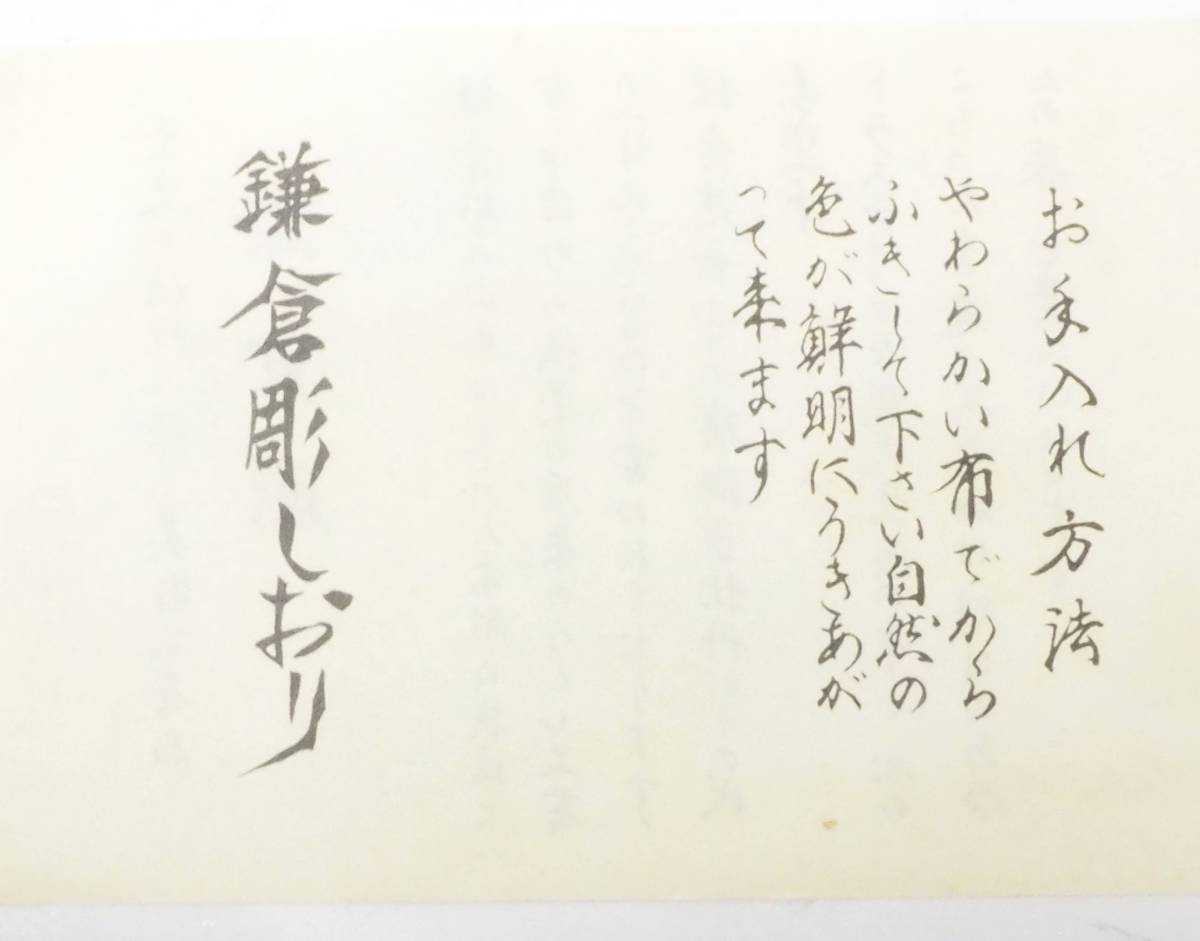 お手入れ方法
やわらかい布でから
ふきして下さい自然の
色が鮮明にうきあが
って来ます
鎌倉彫しおり